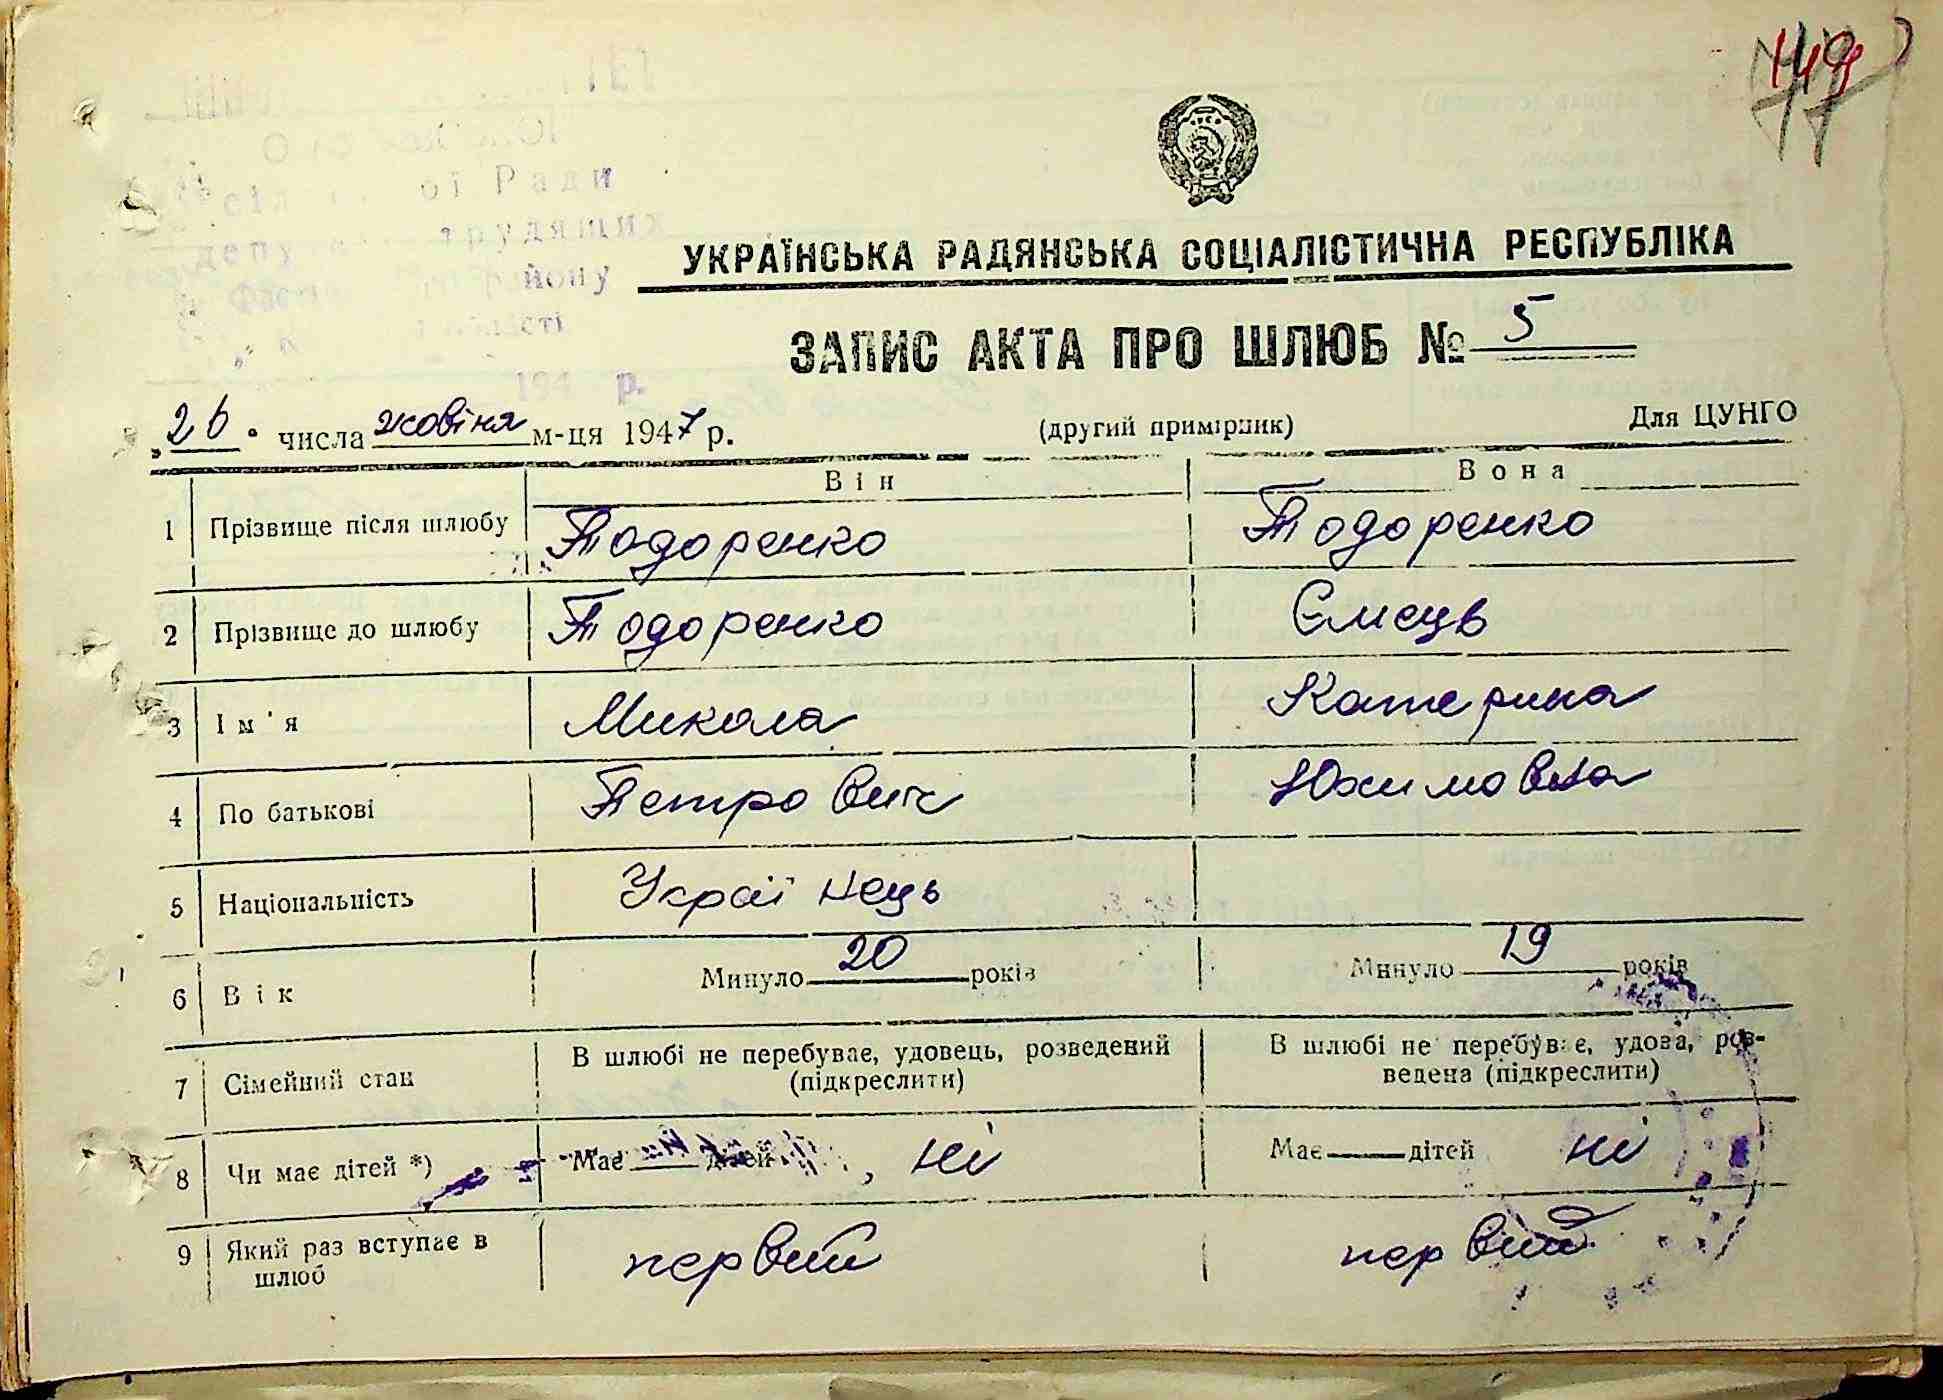 УКРАЇНСЬКА РАДЯНСЬКА СОЦІАЛІСТИЧНА РЕСПУБЛІКА
ЗАПИС АКТА ПРО ШЛЮБ № 5
„26" числа жовтня м-ця 1947 р. (другий примірник) Для ЦУНГО
Він Вона
1 Прізвище після шлюбу Тодоренко Тодоренко
2 Прізвище до шлюбу Тодоренко Ємець
3 Ім'я Микола Катерина
4 По батькові Петрович Юхимовна
5 Національність Українець
6 Вік Минуло 20 років Минуло 19 років
7 Сімейний стан В шлюбі не перебуває, удовець, розведений (підкреслити) В шлюбі не перебуває, удова, роз-
ведена (підкреслити)
8 Чи має дітей *) Має дітей, ні Має дітей ні
9 Який раз вступає в шлюб первий первий